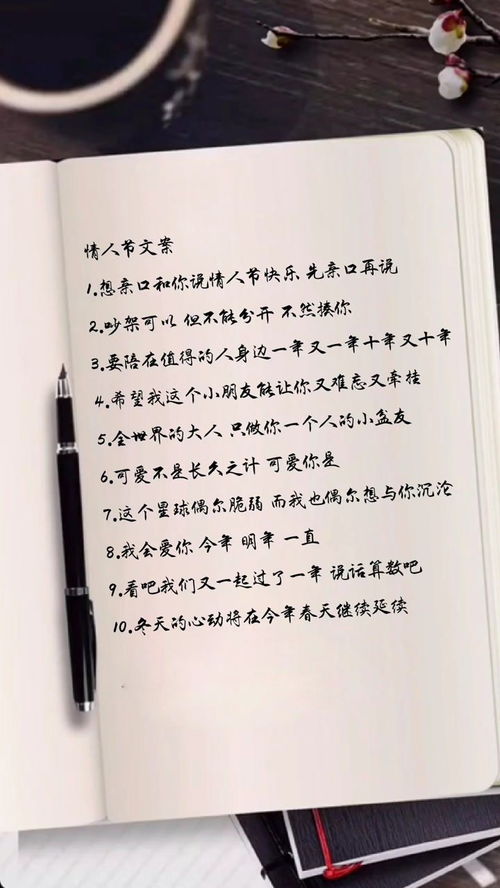 情人节文案
1.想亲口和你说情人节快乐 先亲口再说
2.吵架可以 但不能分开 不然揍你
3.要陪在值得的人身边一年又一年十年又十年
4.希望我这个小朋友能让你又难忘又牵挂
5.全世界的大人 只做你一个人的小盆友
6.可爱不是长久之计 可爱你是
7.这个星球偶尔脆弱 而我也偶尔想与你沉沦
8.我会爱你 今年 明年 一直
9.看吧我们又一起过了一年 说话算数吧
10.冬天的心动将在今年春天继续延续